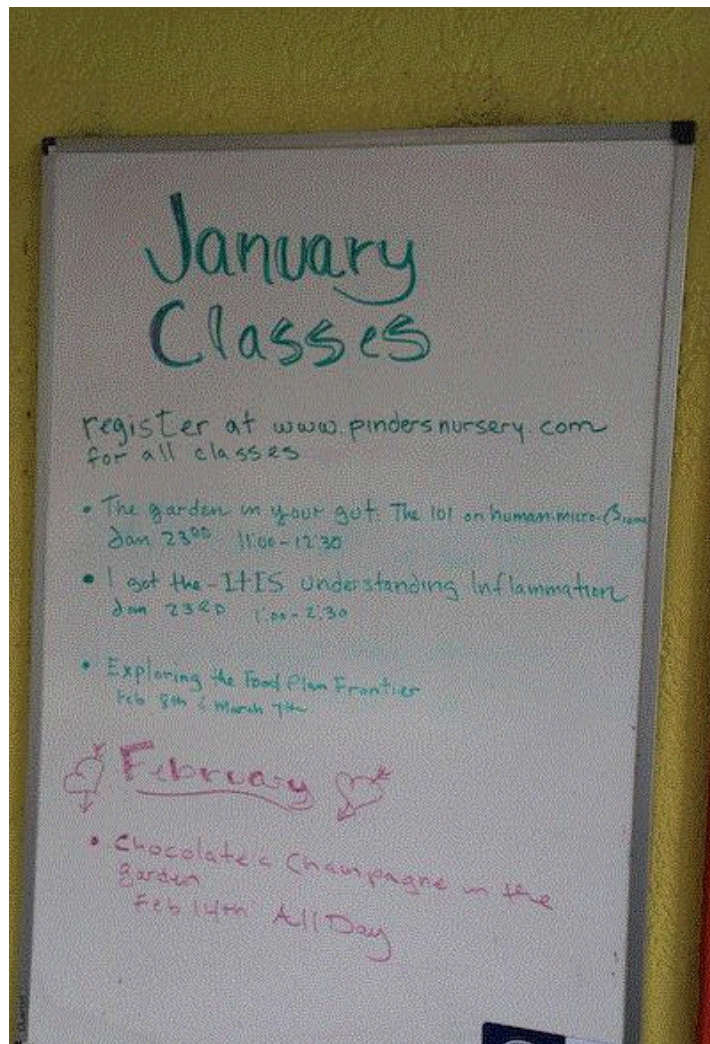 January
Classes
register at www.pindersnursery.com
for all classes
• The garden in your gut. The 101 on human-micro-Biome
Jan 23RD 11:00-12:30
• I got the -ItIS understanding Inflammation
Jan 23RD 1:00-2:30
• Exploring the Food Plan Frontier
Feb 8th & March 7th
February
• Chocolate & Champagne in the
garden
Feb 14th All Day